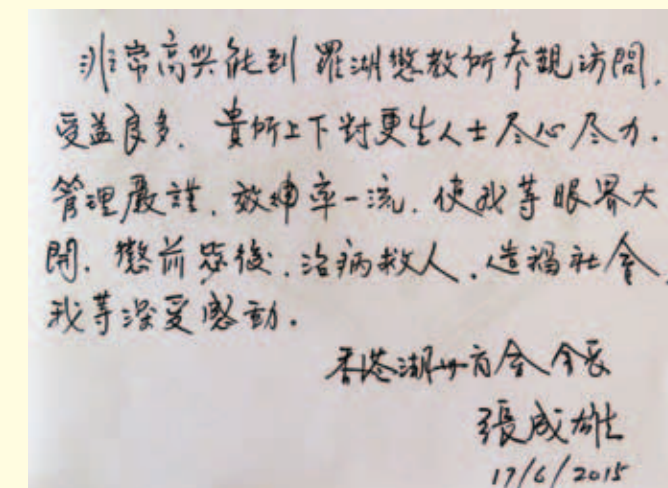 非常高兴能到羅湖懲教所参觀訪問,
受益良多. 貴所上下對更生人士尽心尽力.
管理嚴謹. 效率一流. 使我等眼界大
開. 懲前毖後. 治病救人. 造福社会,
我等深受感動.
香港湖州商会会長
張成雄
17/6/2015